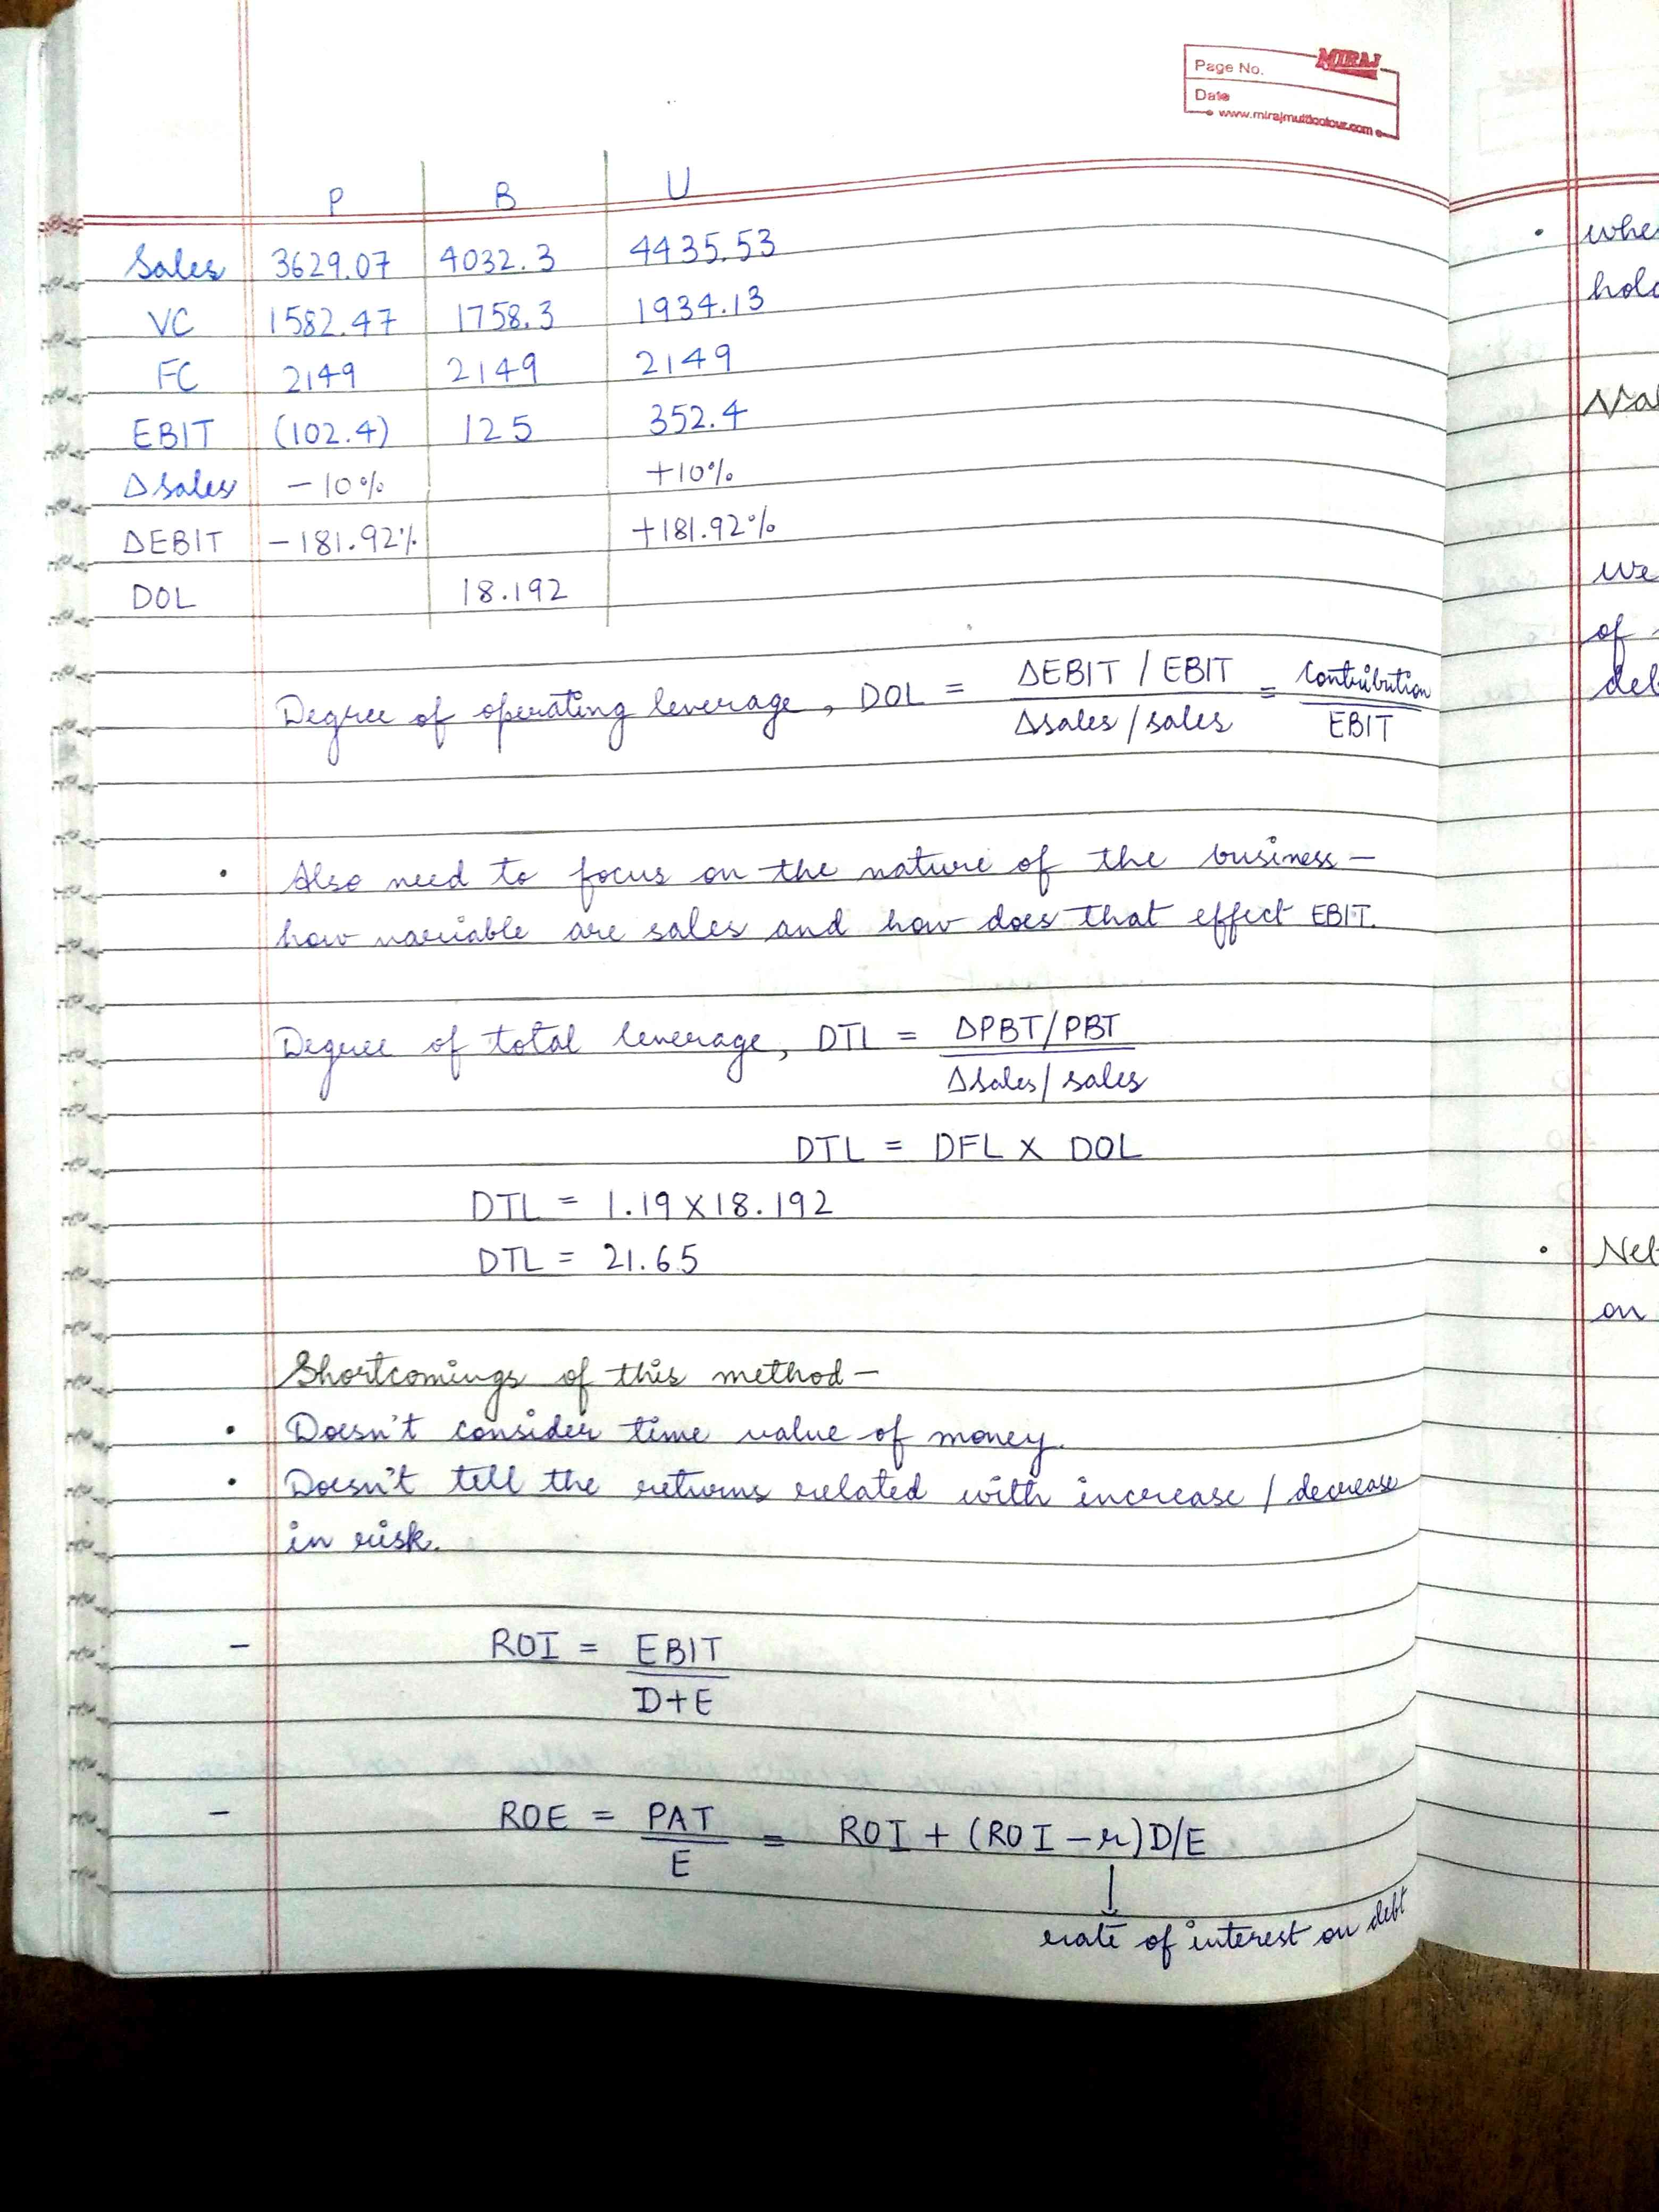 MIRAJ
Page No.
Date
www.mirajmulticolour.com
P B U
Sales 3629.07 4032.3 4435.53
VC 1582.47 1758.3 1934.13
FC 2149 2149 2149
EBIT (102.4) 125 352.4
Δsales -10% +10%
ΔEBIT -181.92% +181.92%
DOL 18.192
Degree of operating leverage, DOL = ΔEBIT / EBIT = Contribution
Δsales / sales EBIT
• Also need to focus on the nature of the business -
how variable are sales and how does that effect EBIT.
Degree of total leverage, DTL = ΔPBT/PBT
Δsales / sales
DTL = DFL X DOL
DTL = 1.19 X 18.192
DTL = 21.65
Shortcomings of this method -
• Doesn't consider time value of money.
• Doesn't tell the returns related with increase / decrease
in risk.
- ROI = EBIT
D+E
- ROE = PAT = ROI + (ROI - r) D/E
E
rate of interest on debt
• whe
hold
we
of
deb
• Net
on